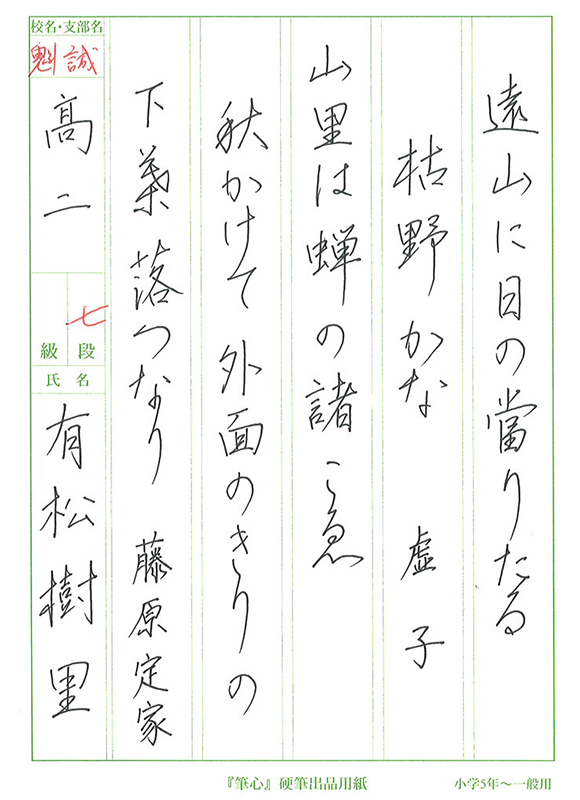 遠山に日の當りたる
枯野かな 虚子
山里は蝉の諸こゑ
秋かけて外面のきりの
下葉落つなり 藤原定家
校名・支部名
魁誠
高二
七
級 段
氏名
有松樹里
『筆心』硬筆出品用紙
小学5年〜一般用